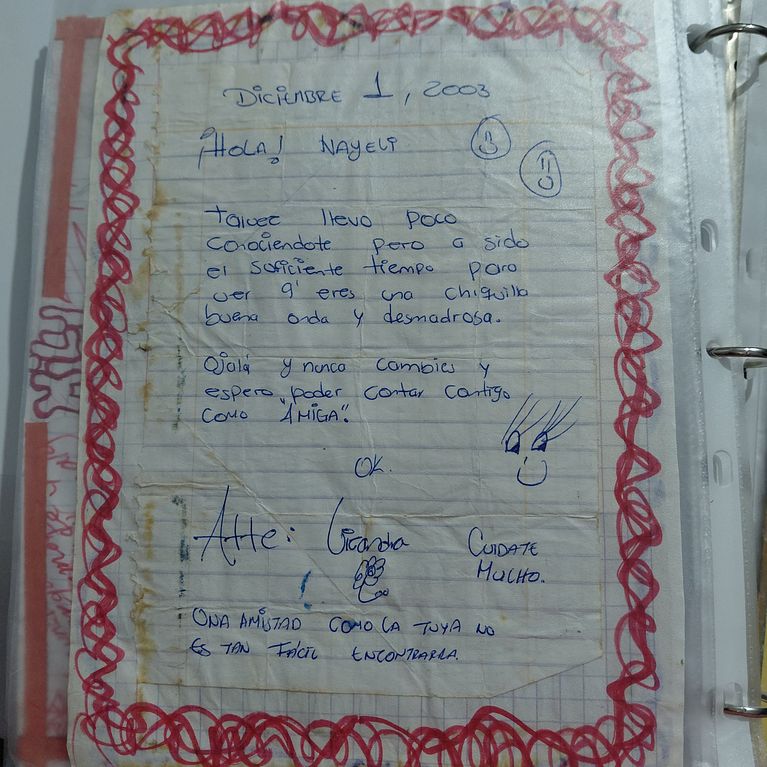 DICIEMBRE 1, 2003
¡HOLA! NAYELI
talvez llevo poco
conociendote pero a sido
el suficiente tiempo para
ver q' eres una chiquilla
buena onda y desmadrosa.
Ojalá y nunca cambies y
espero poder contar contigo
como "AMIGA".
OK.
Atte:
CUIDATE
MUCHO.
UNA AMISTAD COMO LA TUYA NO
ES TAN FÁCIL ENCONTRARLA.